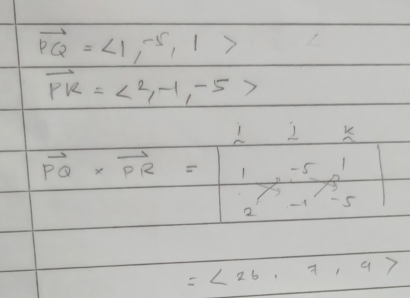 PQ = <1, -5, 1>
PR = <2, -1, -5>
i j k
PQ × PR = | 1 -5 1 |
2 -1 -5
= <26, 7, 9>